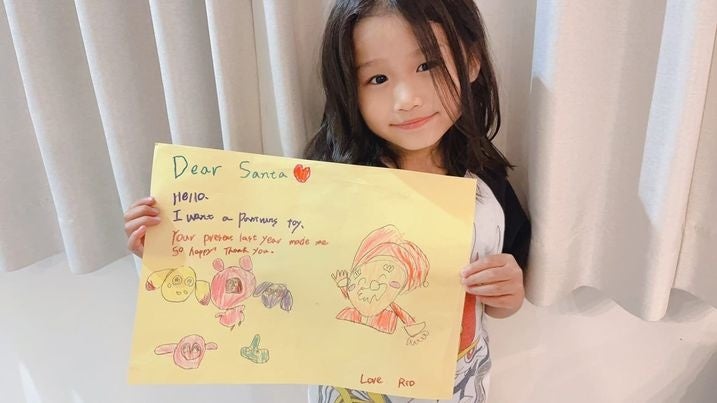 Dear Santa
Hello.
I want a toy.
Your present last year made me
so happy! Thank you.
Love Rio